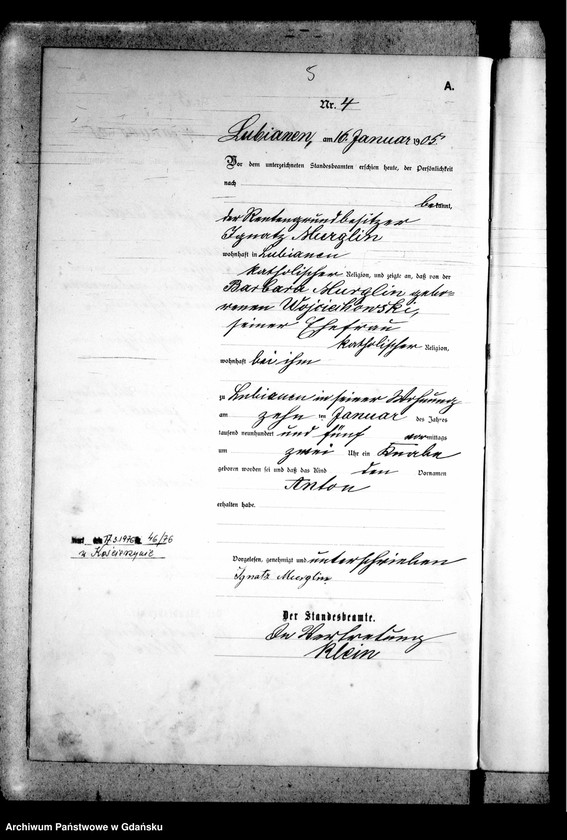 5
A.
Nr. 4
Lubianen, am 16. Januar 1905.
Vor dem unterzeichneten Standesbeamten erschien heute, der Persönlichkeit
nach
bekannt,
der Rentengrundbesitzer
Ignatz Murglin
wohnhaft in Lubianen
katholischer Religion, und zeigte an, daß von der
Barbara Murglin gebo=
renen Wojciechowski,
seiner Ehefrau
katholischer Religion,
wohnhaft bei ihm
zu Lubianen in seiner Wohnung
am zehn ten Januar des Jahres
tausend neunhundert und fünf vormittags
um zwei Uhr ein Knabe
geboren worden sei und daß das Kind den Vornamen
Anton
erhalten habe.
17.3.1976 46/76
w Kościerzynie
Vorgelesen, genehmigt und unterschrieben
Ignatz Murglin
Der Standesbeamte.
In Vertretung
Klein
Archiwum Państwowe w Gdańsku